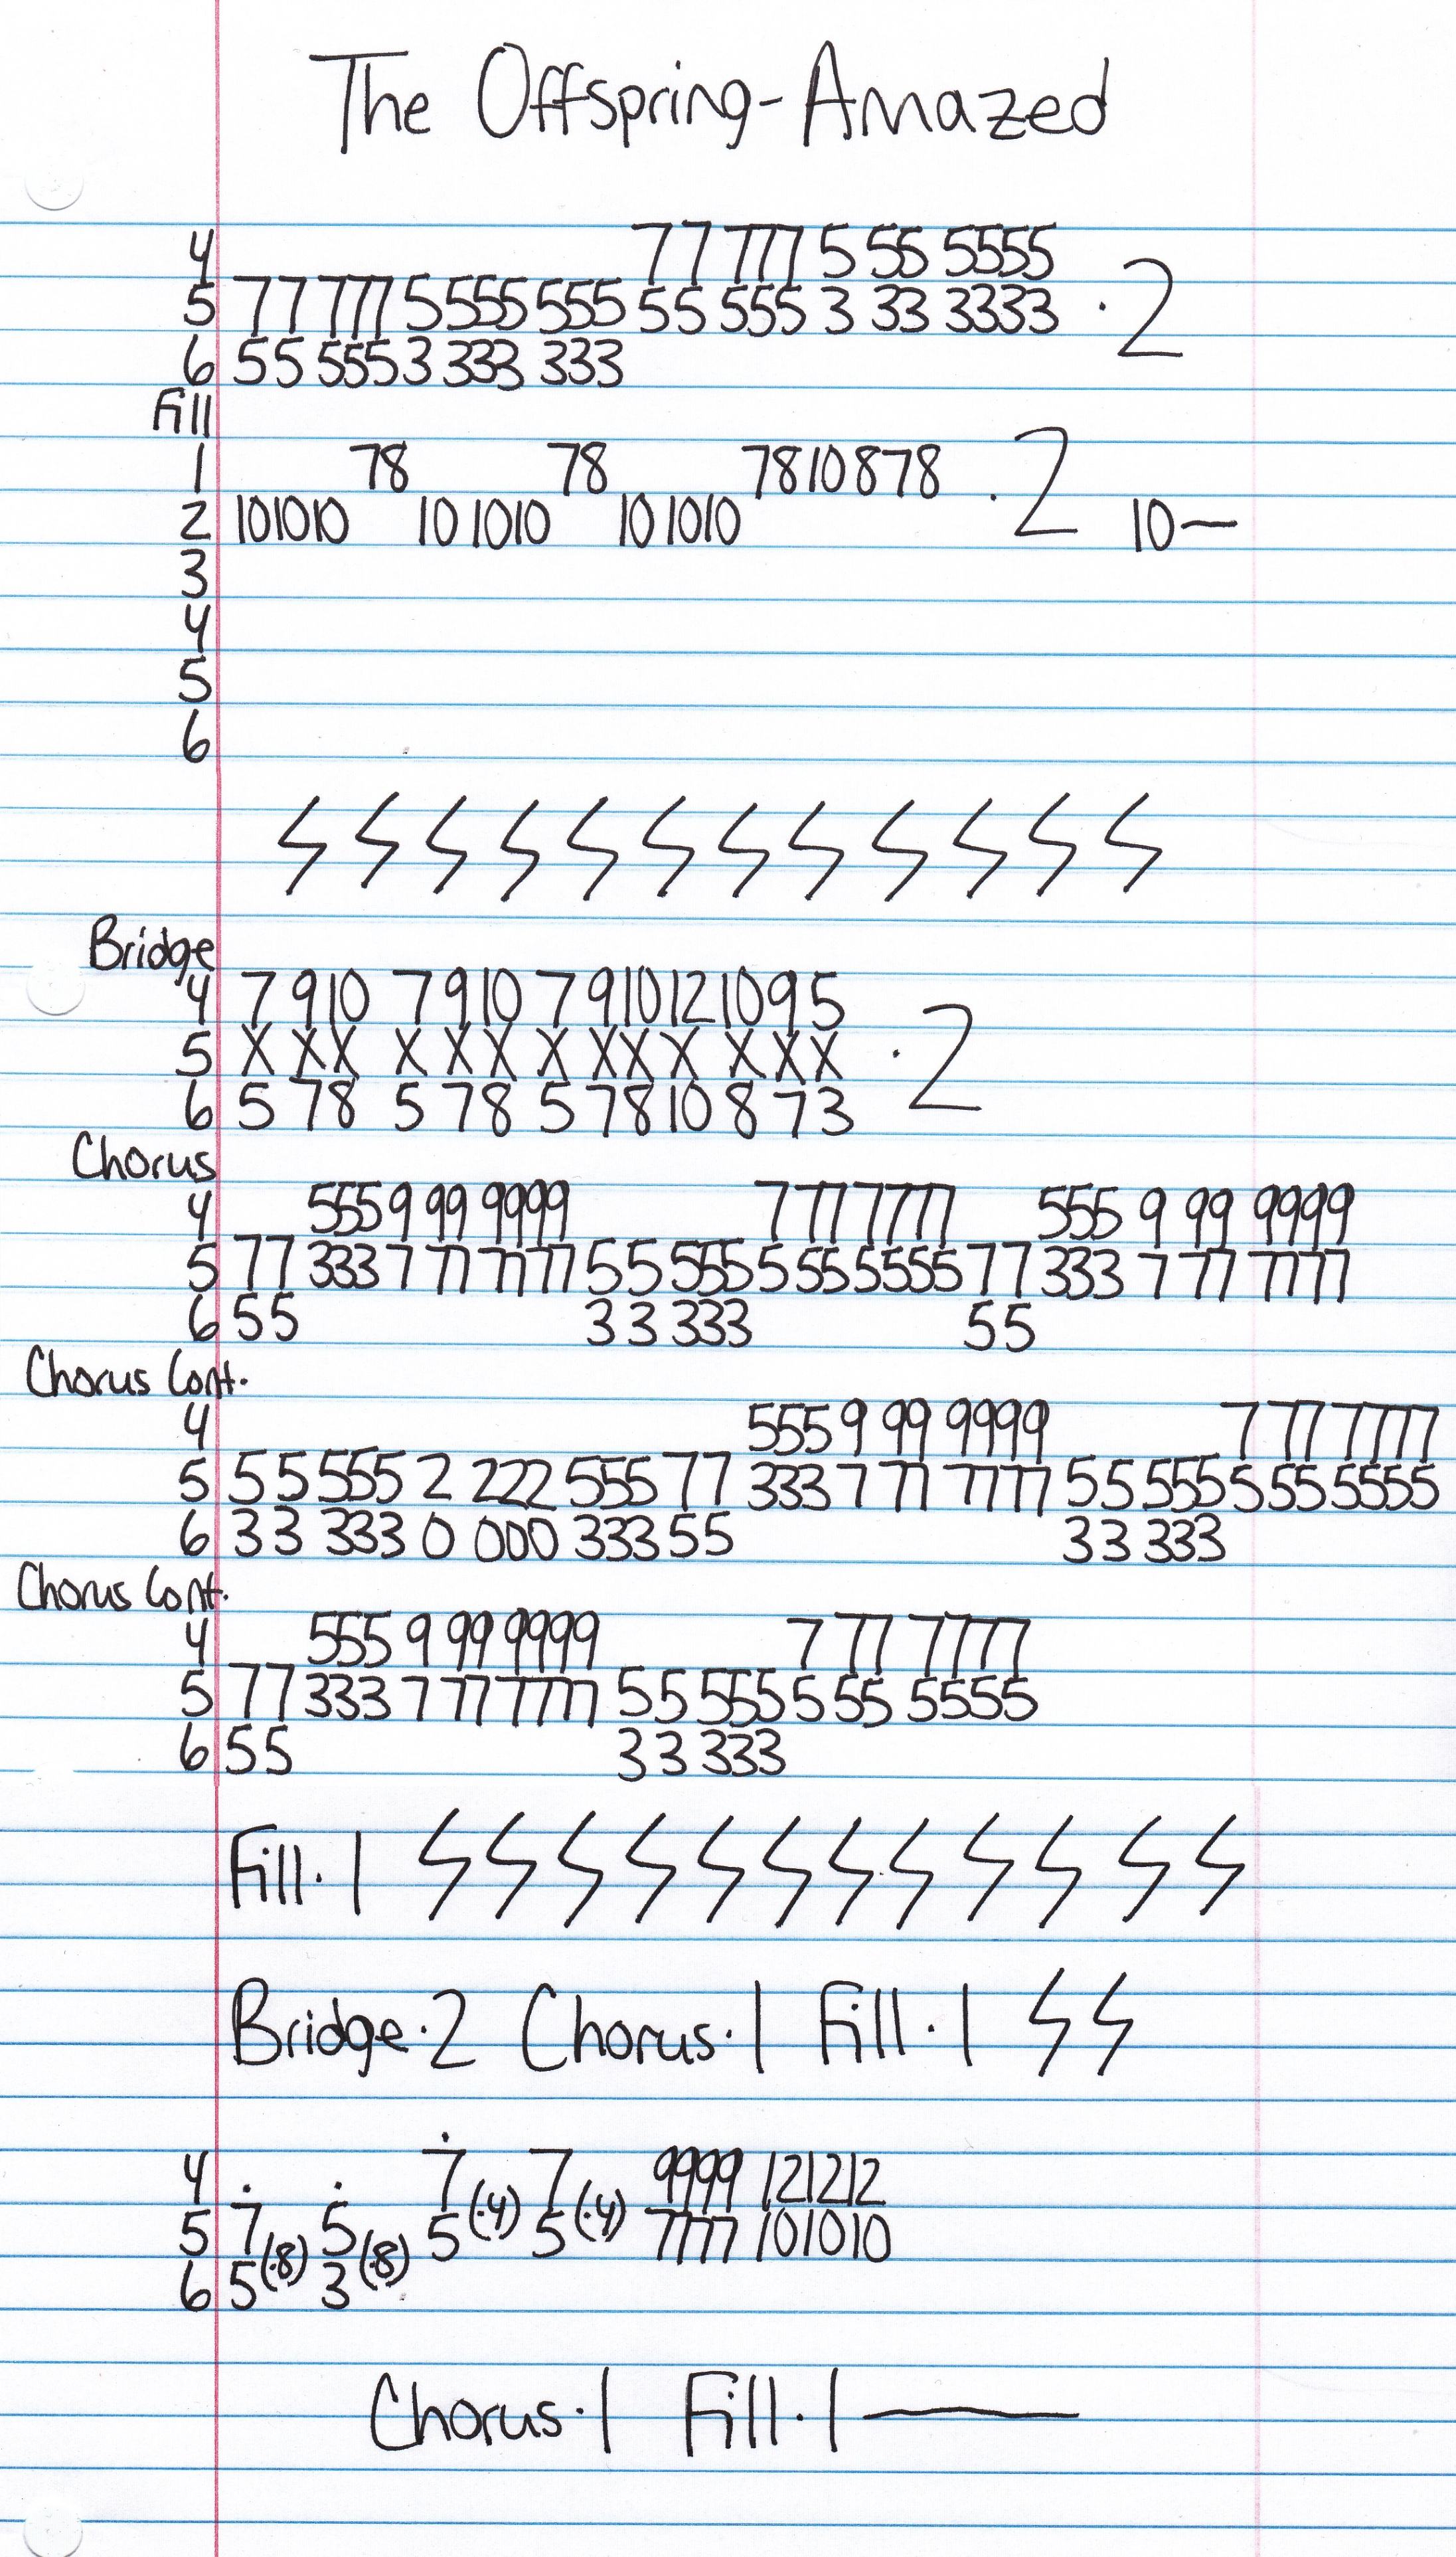 The Offspring-Amazed
4 77 777 5 55 5555
5 77 777 5 555 555 55 555 3 33 3333 ·2
6 55 555 3 333 333
Fill
1 78 78 7810878
2 101010 10 1010 10 1010 ·2 10—
3
4
5
6
Bridge
4 7 910 7 9 10 7 9101210 9 5
5 X XX X X X X XX X X X X ·2
6 5 78 5 78 5 7810 8 7 3
Chorus
4 555 9 99 9999 7 77 7777 555 9 99 9999
5 77 333 7 77 7777 55 555 5 55 5555 77 333 7 77 7777
6 55 33 333 55
Chorus Cont.
4 555 9 99 9999 7 77 7777
5 55 555 2 222 555 77 333 7 77 7777 55 555 5 55 5555
6 33 333 0 000 333 55 33 333
Chorus Cont.
4 555 9 99 9999 7 77 7777
5 77 333 7 77 7777 55 555 5 55 5555
6 55 33 333
Fill·1
Bridge·2 Chorus·1 Fill·1
4 7 (·4) 7 (·4) 9999 121212
5 7 (·8) 5 (·8) 5 5 7777 101010
6 5 3
Chorus·1 Fill·1—